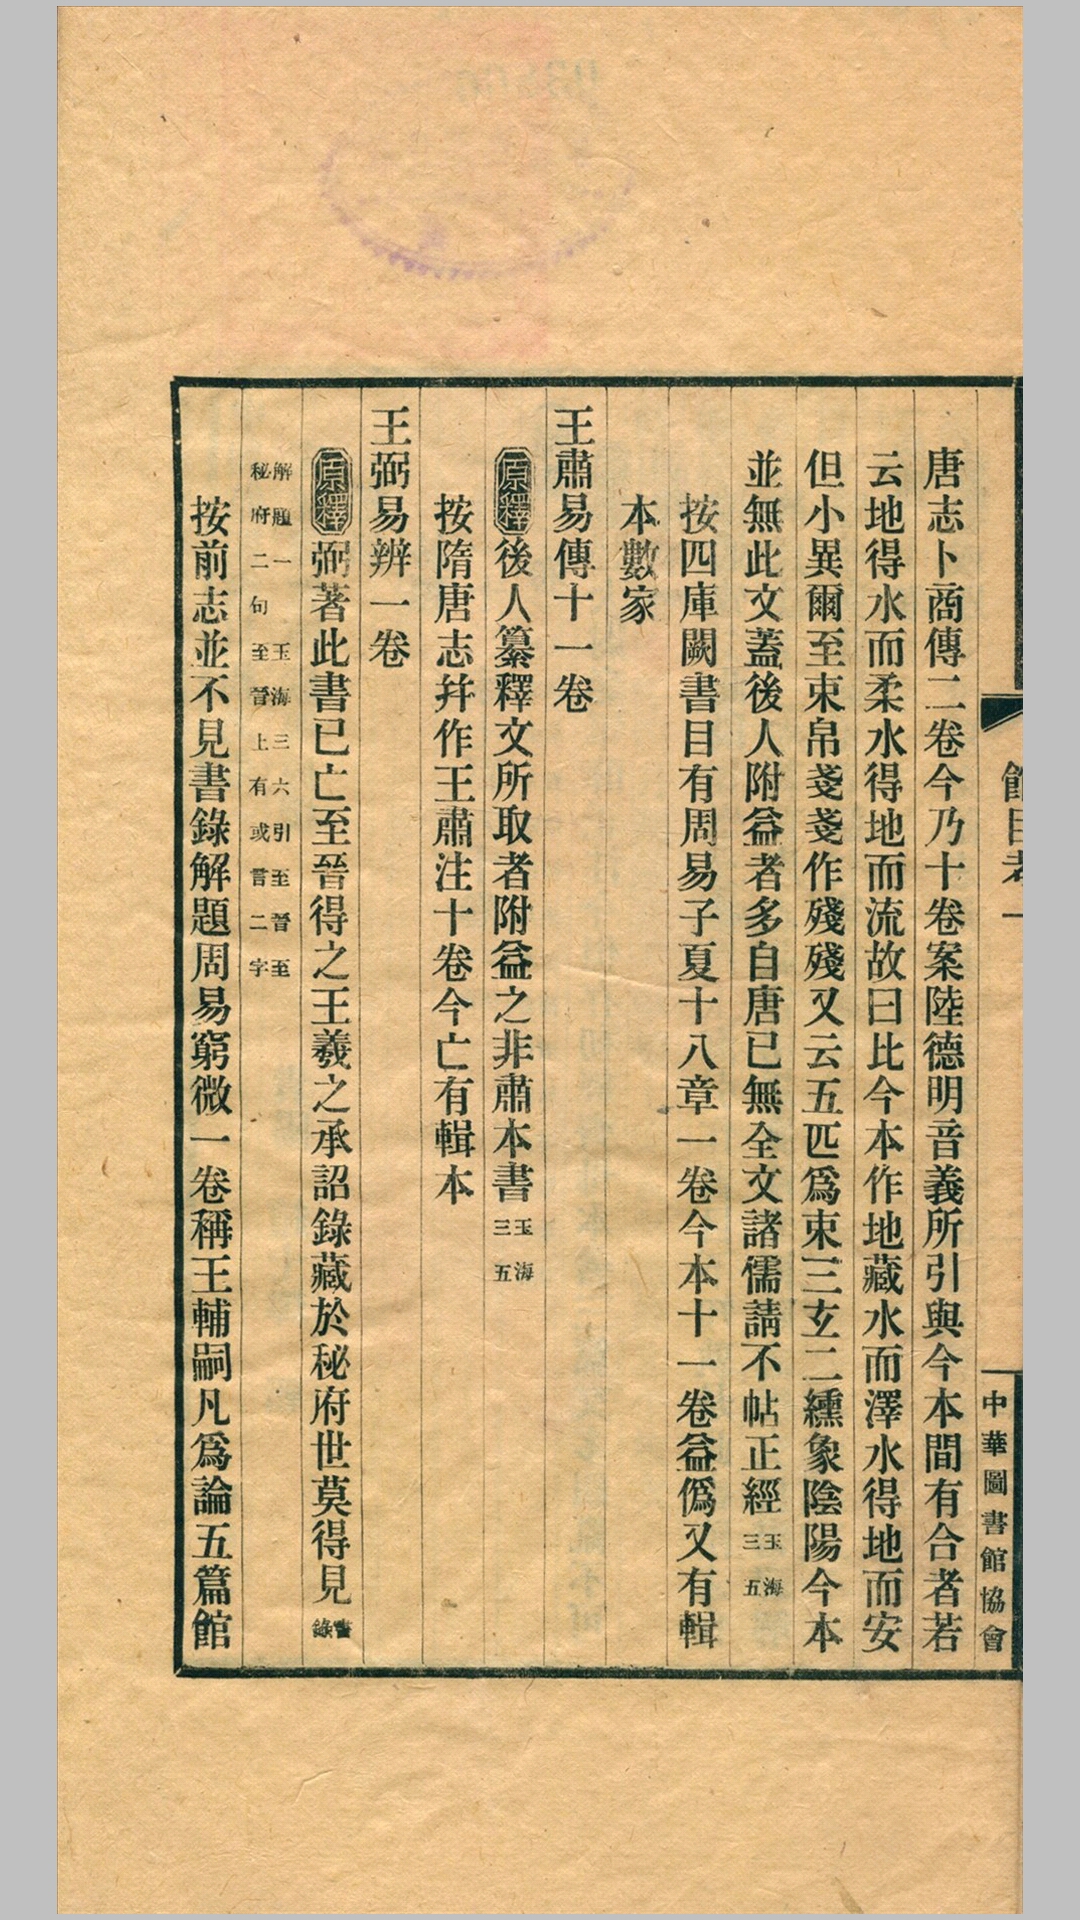 館目考一
中華圖書館協會
唐志卜商傳二卷今乃十卷案陸德明音義所引與今本間有合者若
云地得水而柔水得地而流故曰比今本作地藏水而澤水得地而安
但小異爾至束帛戔戔作殘殘又云五匹爲束三玄二纁象陰陽今本
並無此文蓋後人附益者多自唐已無全文諸儒請不帖正經玉海三五
按四庫闕書目有周易子夏十八章一卷今本十一卷益僞又有輯
本數家
王肅易傳十一卷
原釋後人纂釋文所取者附益之非肅本書玉海三五
按隋唐志并作王肅注十卷今亡有輯本
王弼易辨一卷
原釋弼著此書已亡至晉得之王羲之承詔錄藏於秘府世莫得見書錄
解題一 玉海三六引至晉至
秘府二句至晉上有或言二字
按前志並不見書錄解題周易窮微一卷稱王輔嗣凡爲論五篇館